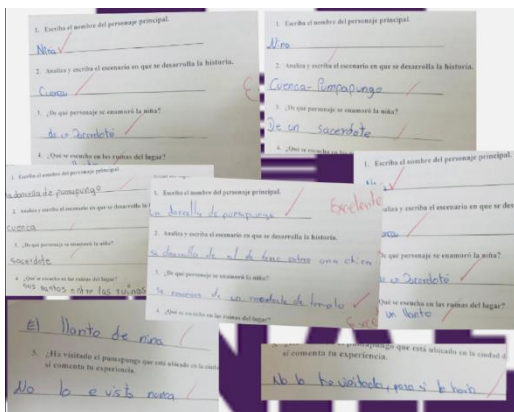 1. Escriba el nombre del personaje principal.
Nina
2. Analiza y escriba el escenario en que se desarrolla la historia.
Cuenca
3. ¿De qué personaje se enamoró la niña?
de un
4. ¿Qué se escucha en las ruinas del lugar?
1. Escriba el nombre del personaje principal.
Nina
2. Analiza y escriba el escenario en que se desarrolla la historia.
Cuenca- Pumapungo
3. ¿De qué personaje se enamoró la niña?
De un sacerdote
4. ¿Qué se escucha en las
1. Escriba el nombre del personaje principal.
la doncella de pumapungo
2. Analiza y escriba el escenario en que se desarrolla la
cuenca
3. ¿De qué personaje se enamoró la niña?
sacerdote
4. ¿Qué se escucha en las ruinas del
sus llantos entre las ruinas
1. Escriba el nombre del personaje principal.
La doncella de pumapungo
Excelente
2. Analiza y escriba el escenario en que se desarrolla la historia.
se desarrolla
3. ¿De qué personaje se enamoró la niña?
se enamora de un de templo
4. ¿Qué se escucha en las ruinas del lugar?
1. Escriba el nombre del personaje principal.
analiza y escriba el escenario en que se des
De qué personaje se enamoró la niña?
Qué se escucha en las ruinas del lugar?
un llanto
El llanto de nina
5. ¿Ha visitado el pumapungo que está ubicado en la ciudad
si comenta tu experiencia.
No lo e visto nunca
pumapungo que está ubicado en la ciudad d
si comenta tu experiencia.
No lo he visitado, pero si lo haria